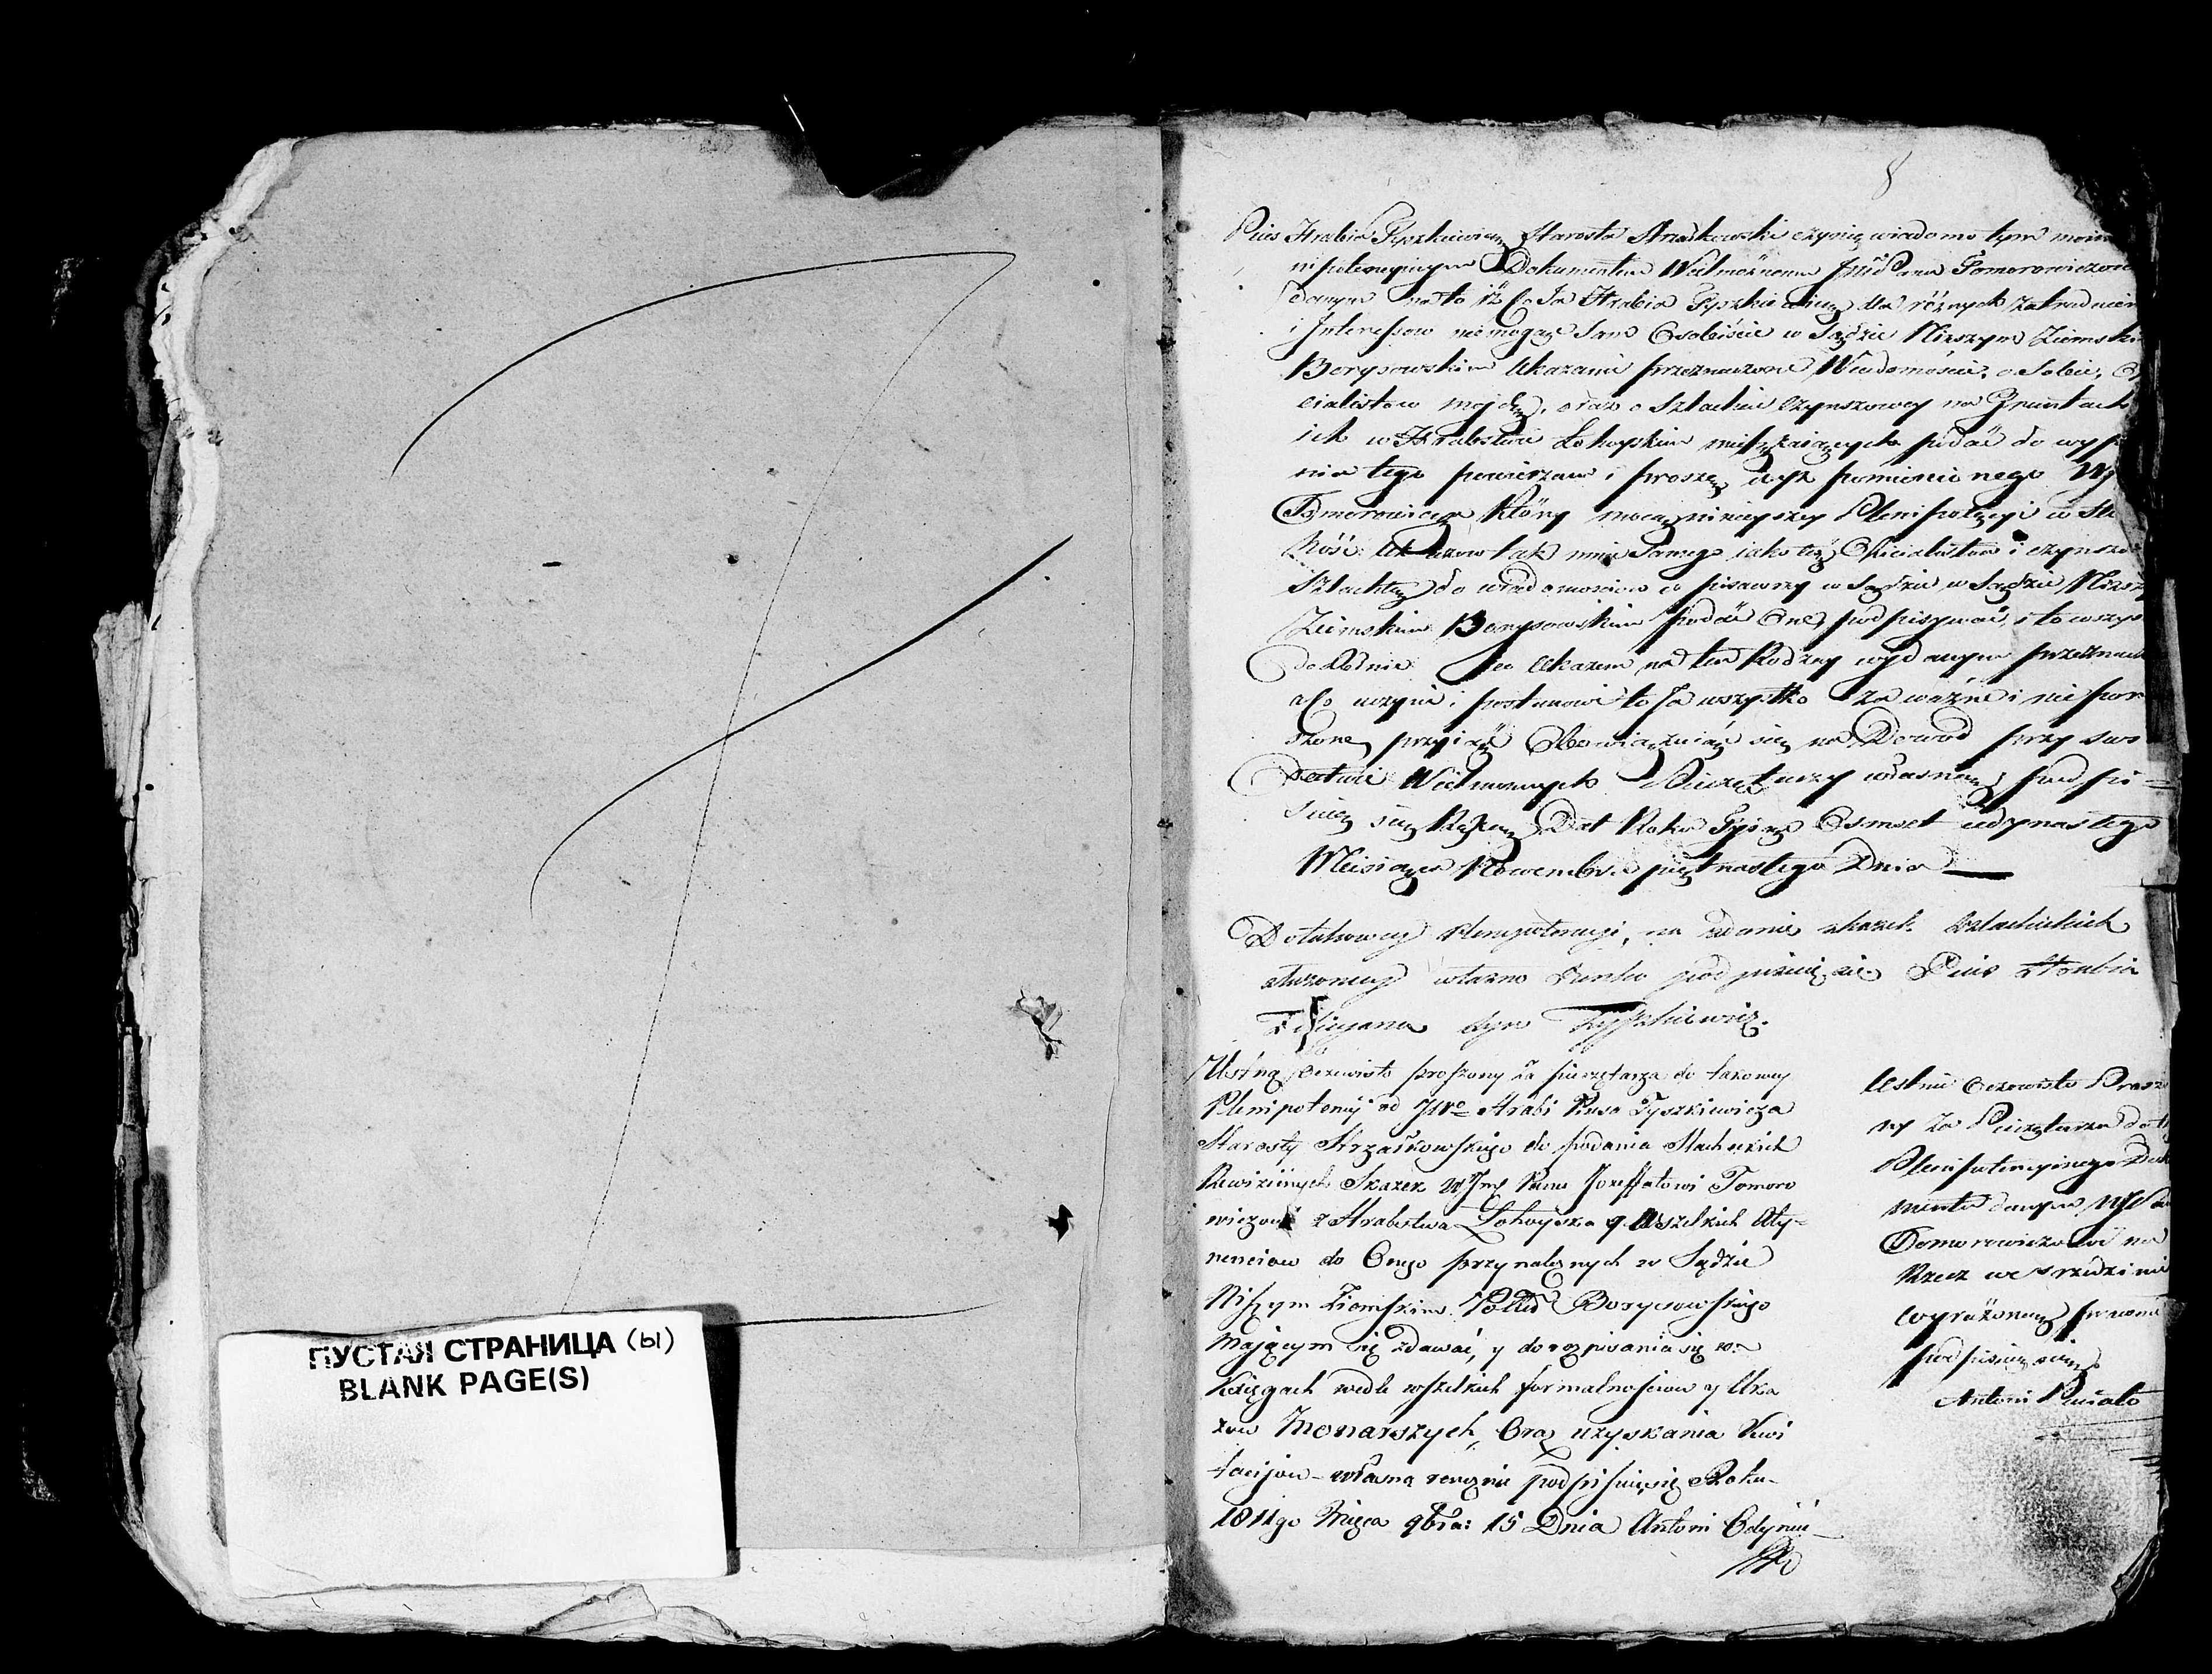 ПУСТАЯ СТРАНИЦА (ы)
BLANK PAGE(S)
8
Pius Hrabia Tyszkiewicz Starosta Strzałkowski czynię wiadomo tym moim
nipotencyinym Dokumentem Wielmożnemu Pana Tomorowiczowi
danym na to iż Ja Hrabia Tyszkiewicz dla różnych zatrudnień
i Interessow niemogąc Sam Osobiście w Sądzie Niższym Ziemski
Borysowskim Ukazami przeznaczone Wiadomości o Sobie,
cialistow moich, oraz o Szlachcie Czynszowey na Gruntach
ich w Hrabstwie Łohoyskim mieszkaiących podać do wyp
nia tego powierzam i proszę wyż pomienionego
Tomorowicza Który mocą ninieyszey Plenipotęcyi w
ność Ukazow tak mnie Samego iako też Oficialistow i czynszo
Szlachtę do wiadomosciow w Sądzie w Sądzie Niższ
Ziemskim Borysowskim podać One, podpisywać, i to wszys
dokładnie Ukazem na ten Rodzay wydanym przeznacz
a Co uczyni i postanowi to Ja wszystko za ważne i niepor
szone przyiąć Obowiązuiąć się na Dowod przy
Wielmożnych Pieczętarzy własną podpi=
suię się Ręką Dat Roku Tysiąc Osmset iedynastego
Miesiąca Nowembra piętnastego Dnia
Do takowey Plenipotencyi, na zdanie skazek szlacheckich
służącey własno ręko podpisuię się Pius Hrabia
Felicyana syn Tyszkiewicz.
Ustną Oczewisto proszony za pieczętarza do takowey
Plenipotencyi od JWo Hrabi Piusa Tyszkiewicza
Starosty Strzałkowskiego do podania Szlacheckich
Rewiziinych Skazek WJmć Panu Jozeffatowi Tomoro
wiczowi z Hrabstwa Łohoyska y Wszelkich Aty=
nenciow do Onego przynależnych w Sądzie
Niższym Ziemskim Pottu Borysowskiego
Mającym się zdawać, y do rozpisania się w
Xsięgach wedle wszelkich formalnosciow y Uka
zow Monarszych, Oraz uzyskania Kwi
tacijow - własną ręcznie podpisuię się Roku
1811go Mięca 9bra: 15 Dnia Antoni Odyniec
Ustnie Oczewisto Prosz
ny za Pieczętarza do
Plenipotencyinego Dok
mentu danym
Tomorowiczowi na
Rzecz we srzedzinie
wyrażoną prawnie
podpisuię się
Antoni